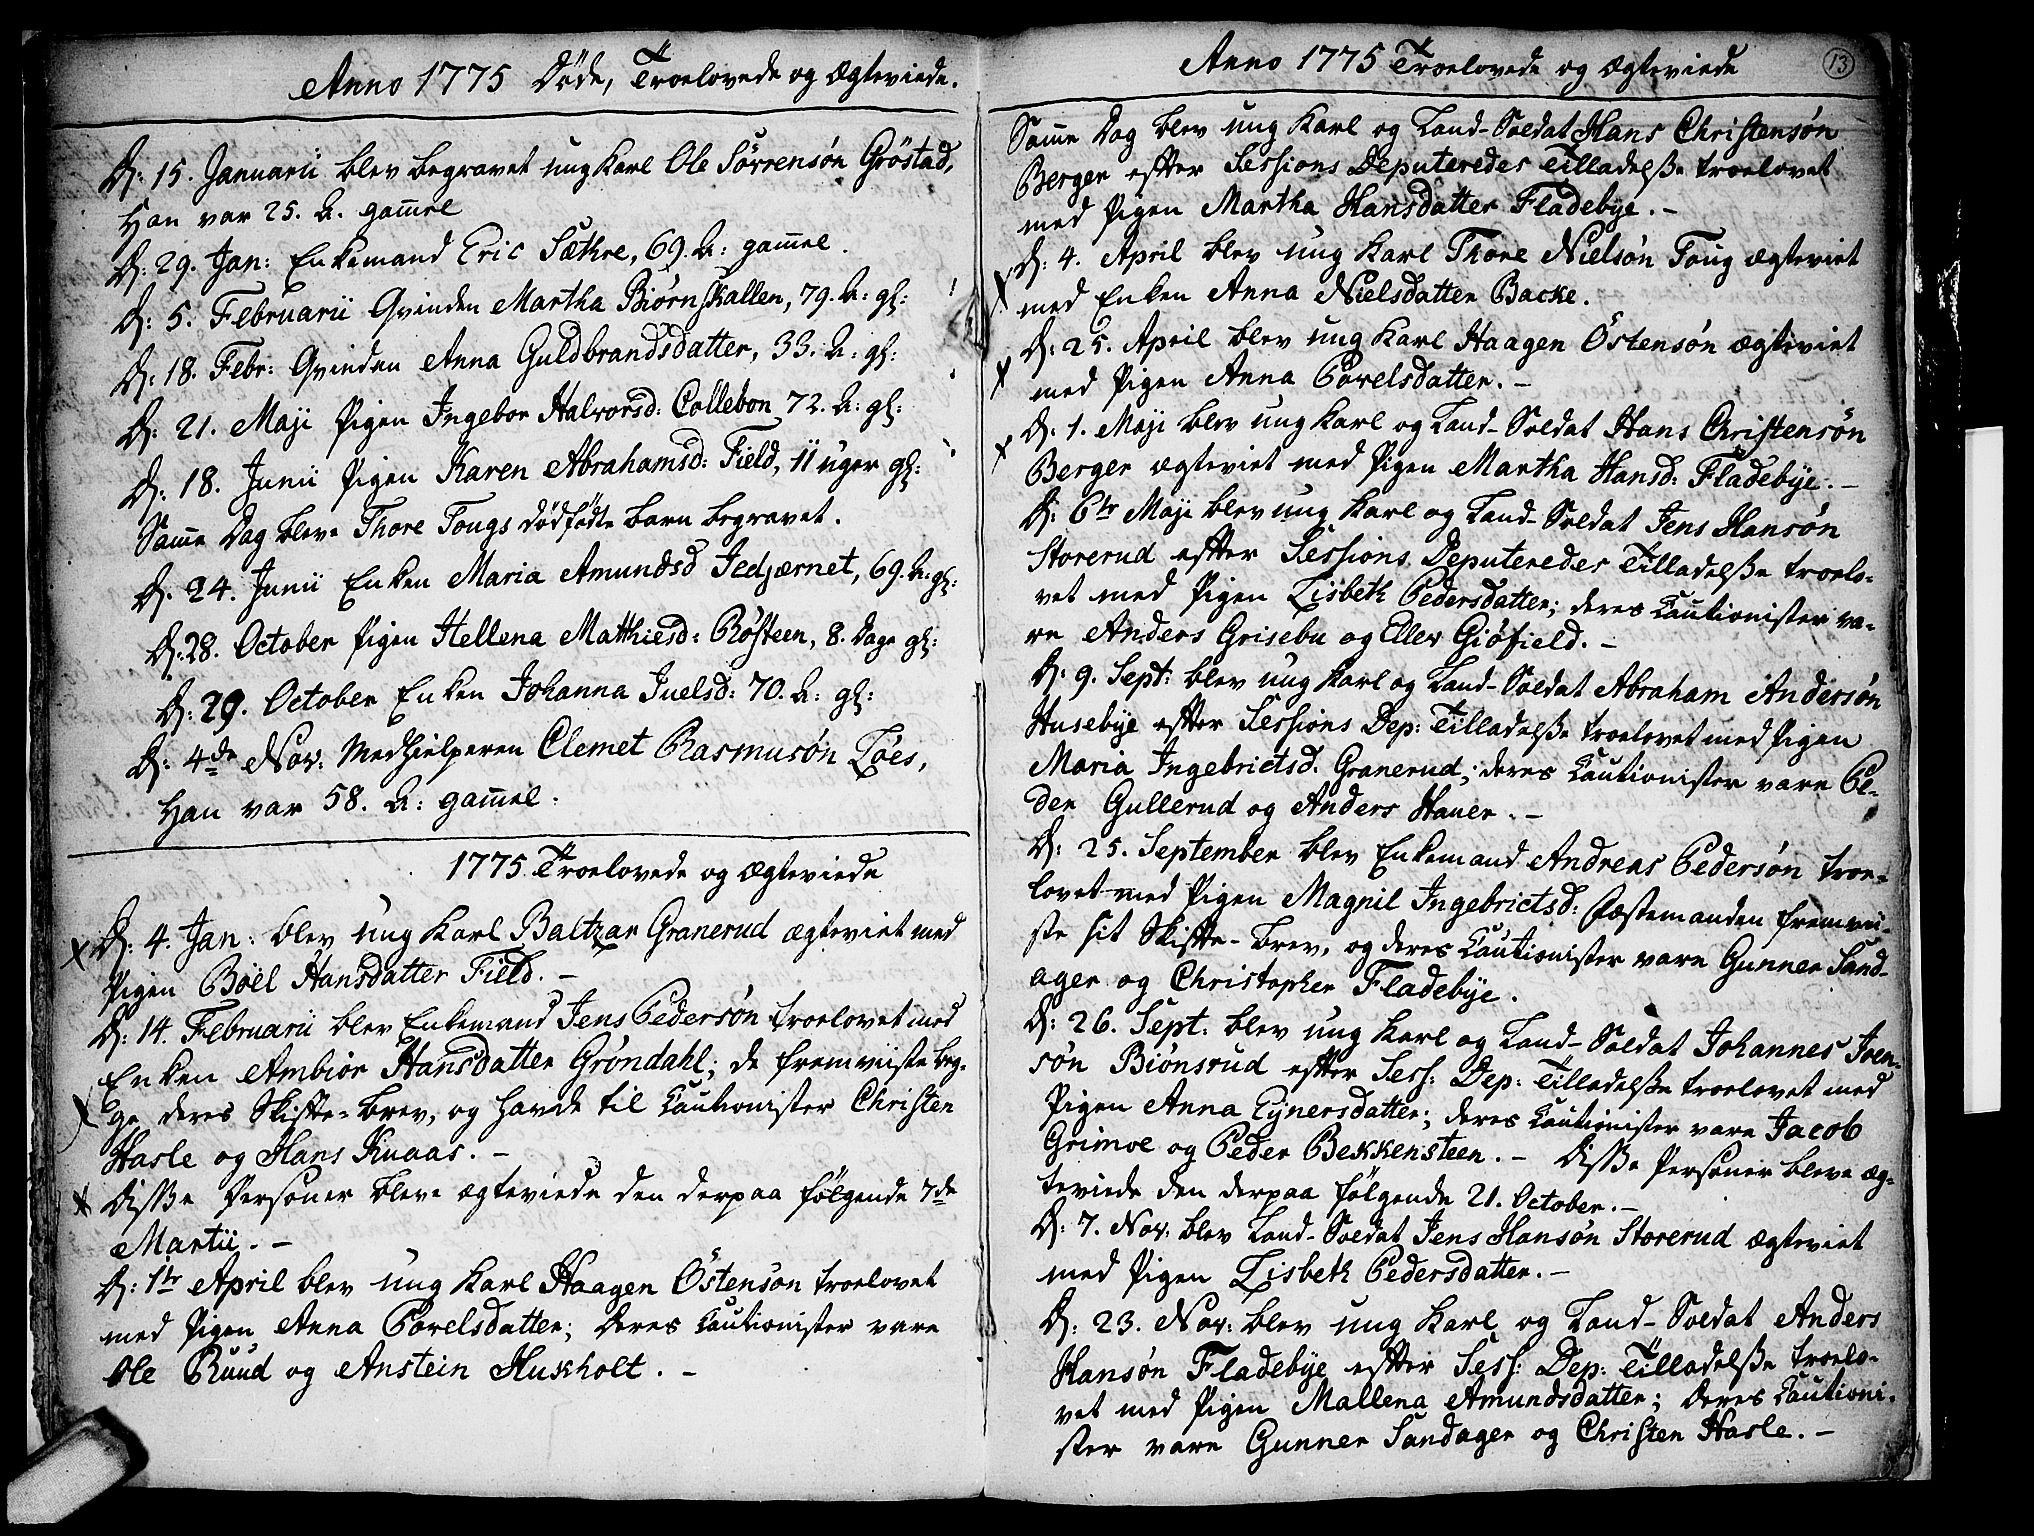 Anno 1775 Døde, Troelovede og Ægteviede.
D: 15. Januarii blev begravet ung Karl Ole Sörrensön Gröstad,
Han var 25. A. gam̄el
D: 29. Jan: Enkemand Eric Sæthre, 69. A: gam̄el.
D: 5. Februarii Qvinden Martha Biørnskallen, 79. A: gl:
D: 18. Febr: Qvinden Anna Guldbrandsdatter, 33. A: gl:
D: 21. Maji Pigen Ingebor Halvorsd: Collebon 72. A: gl:
D: 18. Junii Pigen Karen Abrahamsd: Field, 11 uger gl:
Sam̄e Dag blev Thore Tougs dödfödte barn begravet.
D. 24. Junii Enken Maria Amundsd Jedjærnet, 69. A: gl:
D: 28. October Pigen Hellena Matthiesd: Röysteen, 8. Dage gl:
D: 29. October Enken Johanna Juelsd: 70. A: gl:
D: 4de Nov: Medhielperen Clemet Rasmusön Loes,
Han var 58. A: gam̄el.
1775 Troelovede og Ægteviede
D: 4. Jan: blev ung Karl Baltzar Granerud ægteviet med
Pigen Boël Hansdatter Field. –
D: 14. Februarii blev Enkemand Jens Pedersön troelovet med
Enken Ambior Hansdatter Gröndahl; de fremviiste beg-
ge deres Skifte-brev, og havde til Cautionister Christen
Hasle og Hans Knaas. –
Disse Personer bleve ægteviede den derpaa fölgende 7de
Martii. –
D: 1te April blev ung Karl Haagen Östenson troelovet
med Pigen Anna Povelsdatter; deres Cautionister vare
Ole Ruud og Anstein Hukholt. –
Anno 1775 Troelovede og Ægteviede
13
Sam̄e Dag blev ung Karl og Land-Soldat Hans Christensön
Berger efter Sessions Deputeredes Tilladelse troelovet
med Pigen Martha Hansdatter Fladebye. –
D: 4. April blev ung Karl Thore Nielsön Toug ægteviet
med Enken Anna Nielsdatter Backe.
D: 25. April blev ung Karl Haagen Östensön ægteviet
med Pigen Anna Povelsdatter. –
D: 1. Maji blev ung Karl og Land-Soldat Hans Christensön
Berger ægteviet med Pigen Martha Hansd: Fladebye. –
D: 6te Maji blev ung Karl og Land-Soldat Jens Hansön
Storerud efter Sessions Deputeredes Tilladelse troelo-
vet med Pigen Lisbeth Pedersdatter; deres Cautionister va-
re Anders Grisebu og Ellev Giöfield. –
D: 9. Sept: blev ung Karl og Land-Soldat Abraham Andersön
Husebye efter Sessions Dep: Tilladelse troelovet med Pigen
Maria Ingebrictsd. Granerud; deres Cautionister vare Pe-
der Gullerud og Anders Hauer. –
D: 25. September blev Enkemand Andreas Pedersön troe-
lovet med Pigen Magnil Ingebrictsd: Fæstemanden fremvii-
ste sit Skifte-brev, og deres Cautionister vare Gunner Sand-
ager og Christopher Fladebye.
D: 26. Sept: blev ung Karl og Land-Soldat Johannes Joen-
sön Biönsrud efter Sess: Dep: Tilladelse troelovet med
Pigen Anna Ejnersdatter; deres Cautionister vare Jacob
Grimoe og Peder Bekkensteen. – Disse Personer bleve æg-
teviede den derpaa fölgende 21. October. –
D: 7. Nov: blev Land-Soldat Jens Hansön Storerud ægteviet
med Pigen Lisbeth Pedersdatter. –
D: 23. Nov: blev ung Karl og Land-Soldat Anders
Hansön Fladebye efter Sess: Dep: Tilladelse troelo-
vet med Pigen Mallena Amundsdatter; deres Cautioni-
ster vare Gunner Sandager og Christen Hasle. –